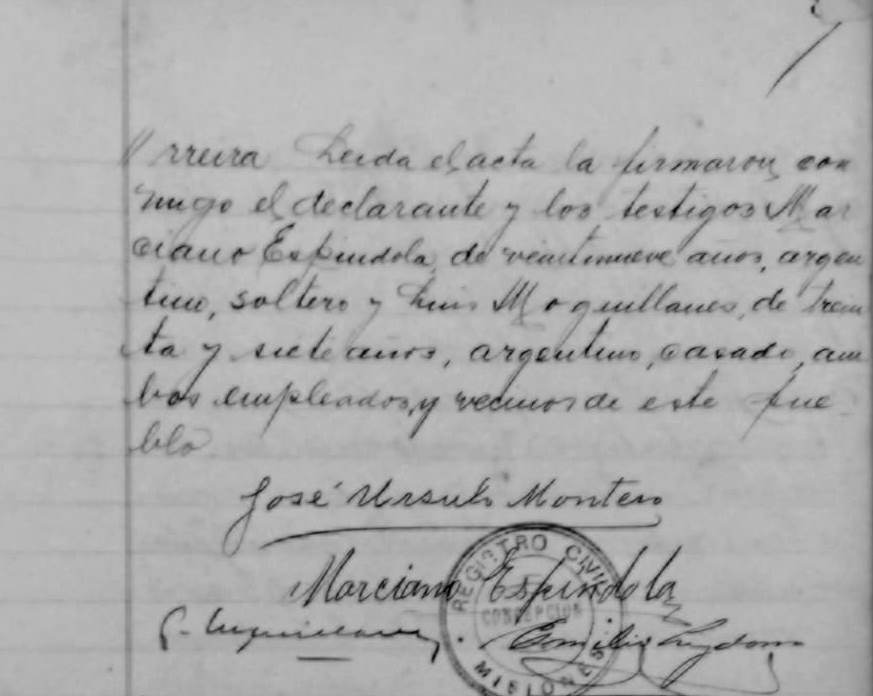 rreira Leida el acta la firmaron con
migo el declarante y los testigos Mar
ciano Espindola, de veintinueve años, argen
tino, soltero y Luis Moquillanes, de trein
ta y siete años, argentino, casado, am
bos empleados, y vecinos de este pue
blo
José Ursulo Montero
Marciano Espindola
REGISTRO CIVIL
CONCEPCION
MISIONES
Emilio